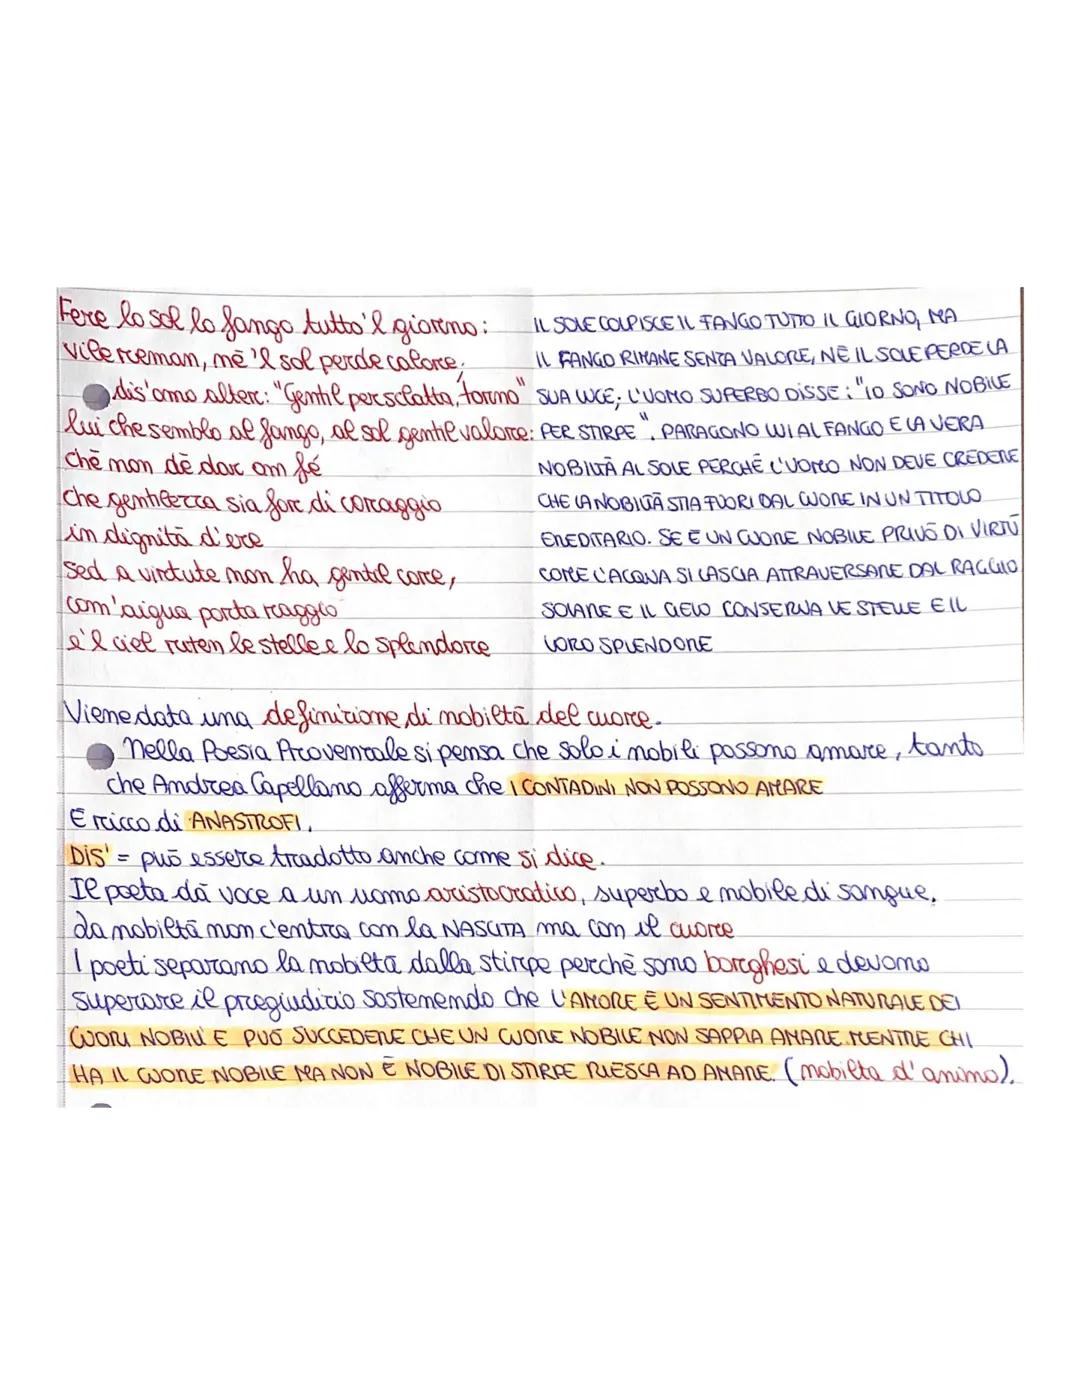 Fere lo sol lo fango tutto 'l giorno:
vile reman, né 'l sol perde calore;
dis' omo alter: "Gentil per sclatta, torno"
lui che semblo al fango, al sol gentil valore:
ché non dè dar om fé
che gentilezza sia for di coraggio
in dignità d'ere
sed a virtute non ha gentil core,
com' aigua porta raggio
e 'l ciel riten le stelle e lo splendore
IL SOLE COLPISCE IL FANGO TUTTO IL GIORNO, MA
IL FANGO RIMANE SENZA VALORE, NÈ IL SOLE PERDE LA
SUA LUCE; L'UOMO SUPERBO DISSE: "IO SONO NOBILE
PER STIRPE". PARAGONO LUI AL FANGO E LA VERA
NOBILTÀ AL SOLE PERCHÈ L'UOMO NON DEVE CREDERE
CHE LA NOBILTÀ STIA FUORI DAL CUORE IN UN TITOLO
EREDITARIO. SE È UN CUORE NOBILE PRIVO DI VIRTÙ
COME L'ACQUA SI LASCIA ATTRAVERSARE DAL RAGGIO
SOLARE E IL CIELO CONSERVA LE STELLE E IL
LORO SPLENDORE
Viene data una definizione di nobiltà del cuore.
Nella Poesia Provenzale si pensa che solo i nobili possono amare, tanto
che Andrea Capellano afferma che I CONTADINI NON POSSONO AMARE
È ricco di ANASTROFI.
DIS' = può essere tradotto anche come si dice.
Il poeta dà voce a un uomo aristocratico, superbo e nobile di sangue.
La nobiltà non c'entra con la NASCITA ma con il cuore
I poeti separano la nobiltà dalla stirpe perchè sono borghesi e devono
superare il pregiudizio sostenendo che L'AMORE È UN SENTIMENTO NATURALE DEI
CUORI NOBILI E PUÒ SUCCEDERE CHE UN CUORE NOBILE NON SAPPIA AMARE MENTRE CHI
HA IL CUORE NOBILE MA NON È NOBILE DI STIRPE RIESCA AD AMARE. (nobiltà d'animo).